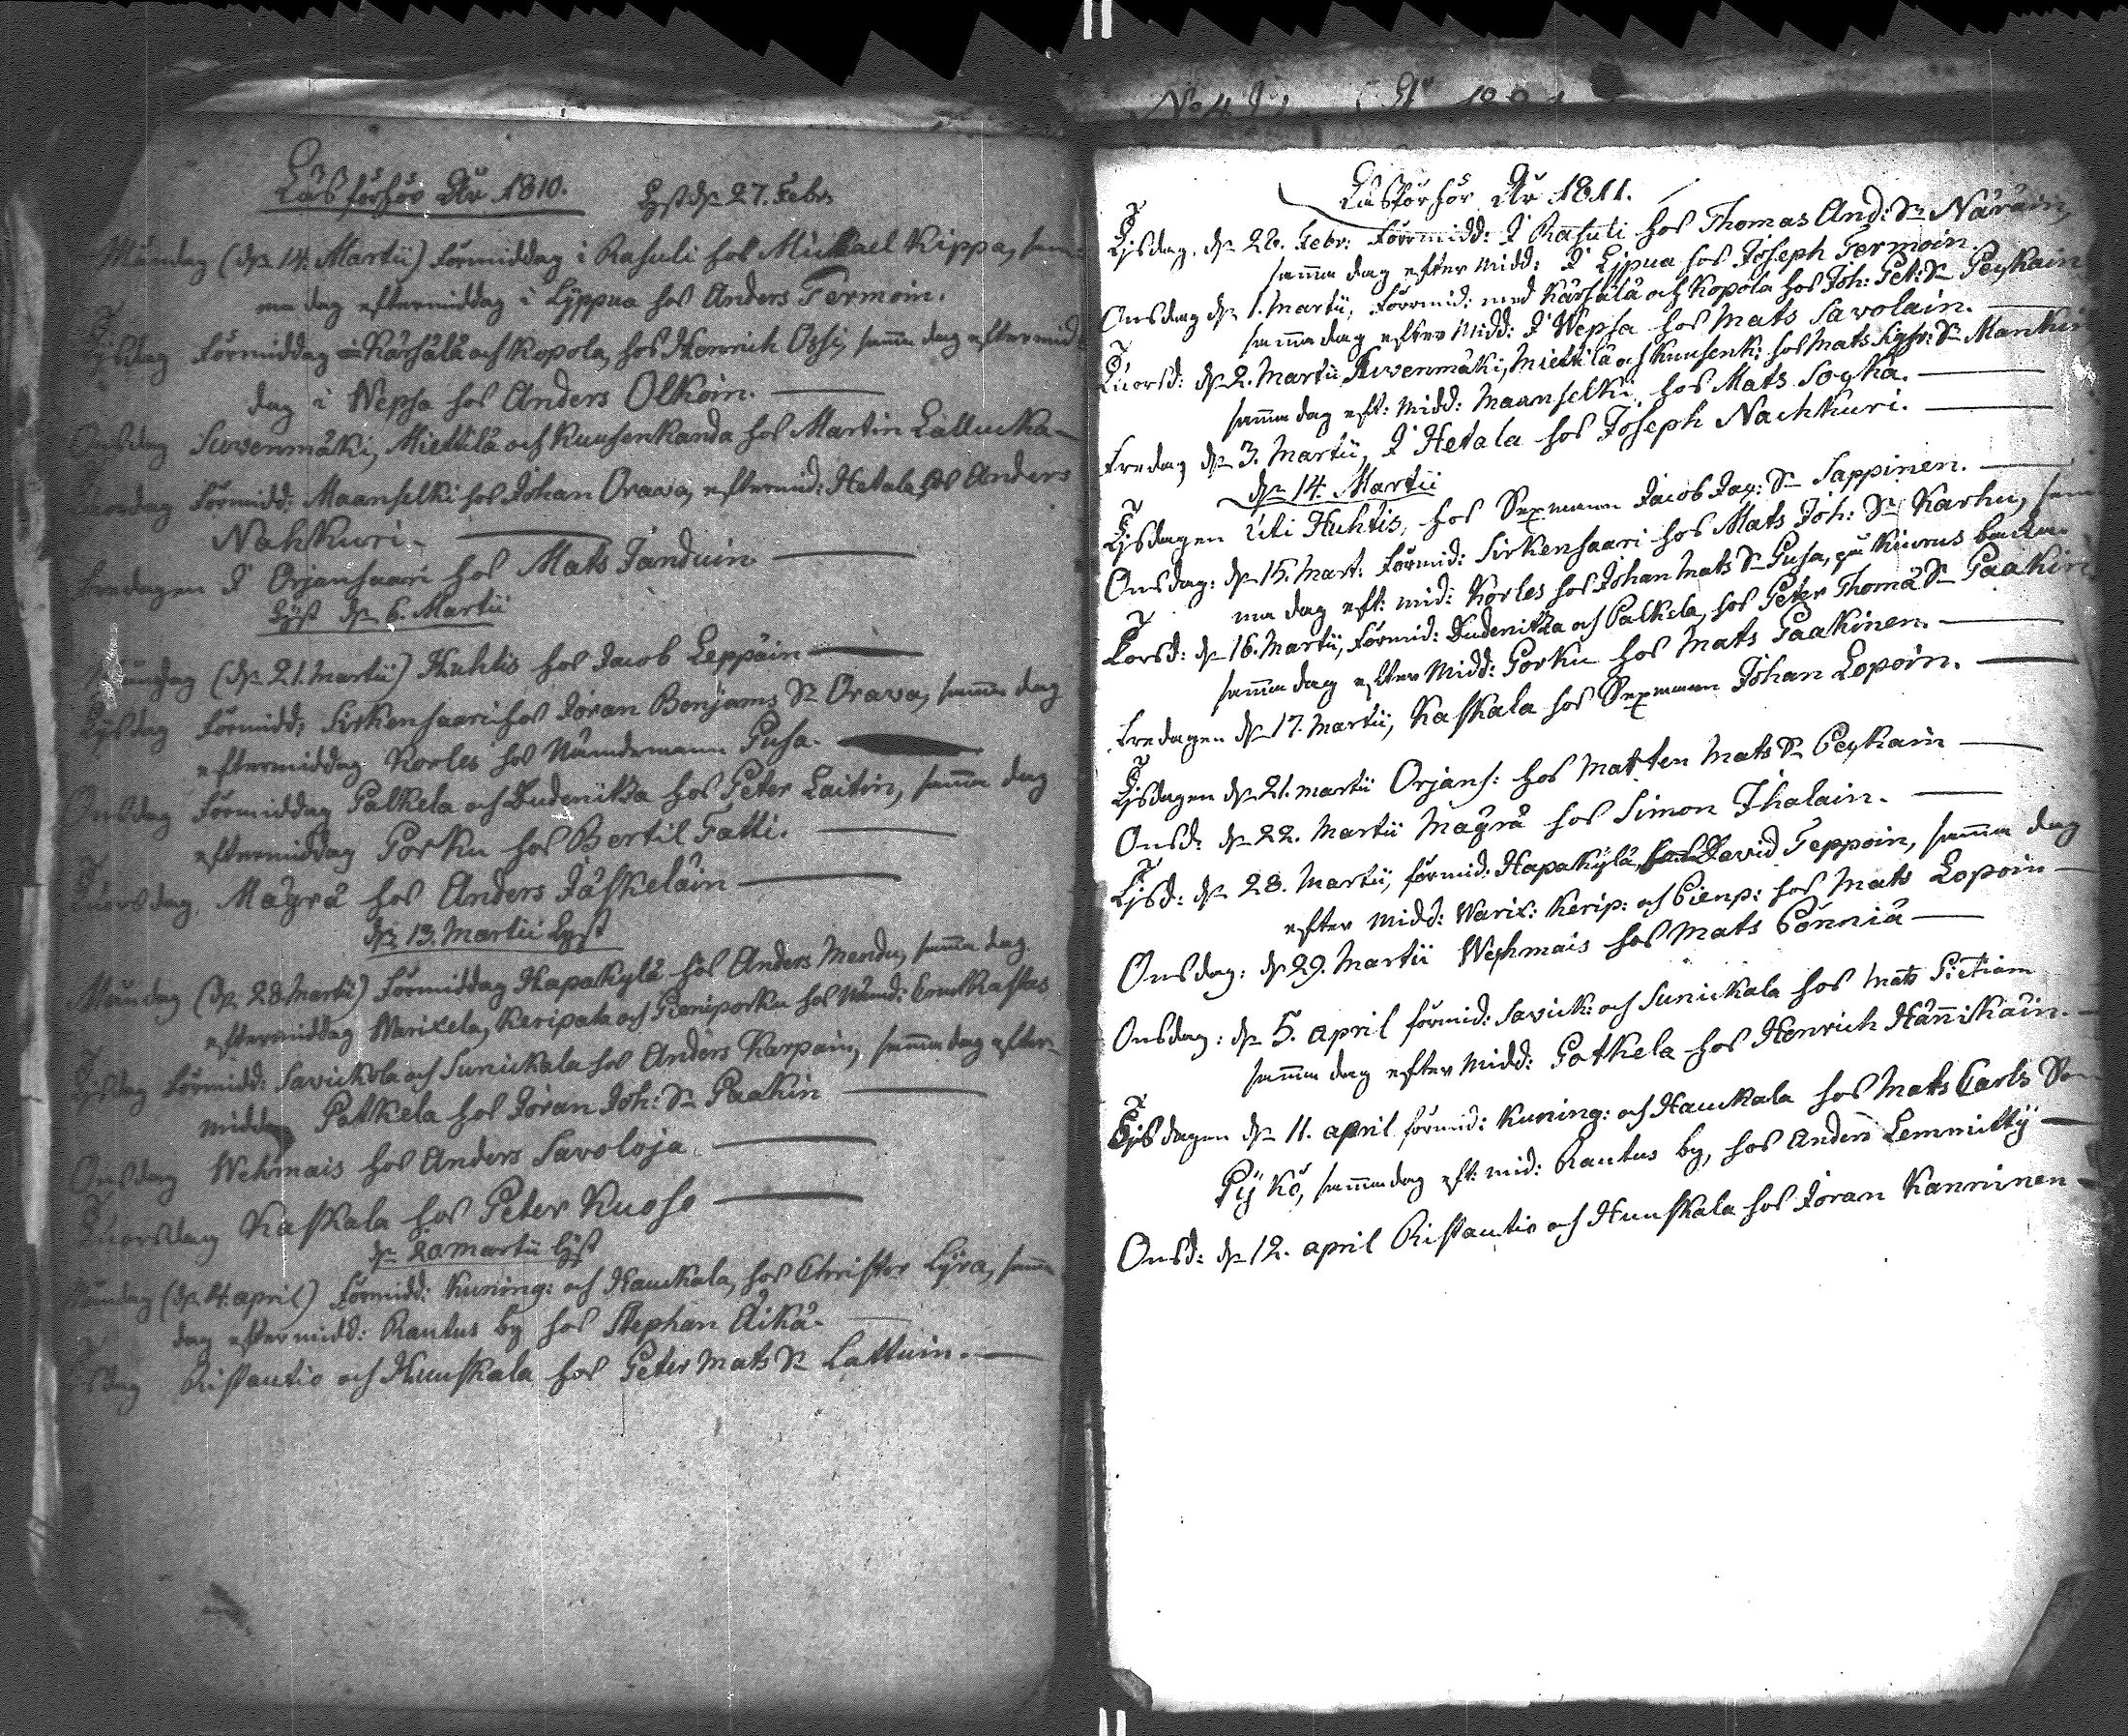 Läsförhör År 1810. Lyst d. 27. Febr.
Måndag (d. 14. Martii) Förmiddag i Rasuli hos Michael Kippa, sam-
ma dag eftermiddag i Lÿppua hos Anders Termoin.
Tjsdag Förmiddag Kärsälä och Kopola, hos Henrich Ossi, samma dag eftermid-
dag i Wepsa hos Anders Olkoin.
Onsdag Suvenmäki, Miettilä och Kuusenkanda hos Martin Lallucka
Förmidd: Maanselki hos Johan Orava, eftermid: Hetala hos Anders
Nahkuri.
Fredagen I Orjansaari hos Mats Janduin.
Lÿst d. 6. Martii
Måndag (d. 21. Martii) Huhtis hos Jacob Leppäin
Tjsdag Förmidd: Sirkensaari hos Jöran Benjams Sn Orava, samma dag
eftermiddag Korles hos Nämdemann Pusa.
Onsdag Förmiddag Palkela och Dudenitza hos Peter Laitin, samma dag
eftermiddag Porku hos Bertil Tatti.
Tuorsdag. Mägrä hos Anders Jäskeläin
d. 13. Martii Lyst
Måndag (d. 28. Martii) Förmiddag Hapakylä hos Anders Mendu, samma dag
eftermiddag Warixela, Keripata och Pieniporku hos Nämd:
Tjsdag Förmidd: Savickola och Sunickala hos Anders Karpain, samma dag efter-
middag Patkela hos Jöran Joh: Sn Paakin
Onsdag Wehmais hos Anders Savoloja.
Tuorsdag Kaskala hos Peter Kuoso
d. 20 Martii lÿst
Måndag (d. 4. april) Förmidd: Kuning: och Hauckala, hos Christer Lÿra, samma
dag eftermidd: Rautus by hos Stephan Äikä.
Ristautio och Huuskala hos Peter Mats Sn Lattuin.
Läsförhör År 1811.
Tjsdag. d. 28. Febr: Förrmidd: I Rasuli hos Thomas And: Sn Näräin,
samma dag efter midd: I Ljpua hos Joseph Termoin.
Onsdag d. 1. Martii, Förrmid: med Kärsälä och Kopola hos Joh: Pet: Sn Peykain
samma dag efter Midd: I Wepsa hos Mats Savolain.
Tuorsd: d. 2. Martii Suvenmäki, Miettilä och Kuusenk: hos Mats Sn Mankin
samma dag eft: midd: Maanselki. hos Mats Soyka.
Fredag d. 3. Martii, I Hetala hos Joseph Nachkuri.
d. 14. Martii
Tjsdagen Uti Huhtis, hos Sexmann Jacob Jac: Sn Sappinen.
Onsdag: d. 15. Mart: Förmid: Sirkensaari hos Mats Joh: Sn Karhu, sam
ma dag eft: mid: Korles hos Johan Mats Sn Pusa, på Kiurus backen
Torsd: d. 16. Martii, Förmid: Dudenitza och Palkela, hos Peter Thomæ Sn Paakin
samma dag efter Midd: Porku hos Mats Paakinen.
Fredagen d. 17. Martii, Kaskala hos Sexmann Johan Lopoin.
Tjsdagen d. 21. Martii Orjans: hos Matten Mats Sn Peykain
Onsd: d. 22. Martii Mägrä hos Simon Ihalain.
Tjsd: d. 28. Martii, förmid: Hapakÿlä, David Teppoin, samma dag
efter midd: Warix: Kerip: och Pienp: hos Mats Lopoin
Onsdag: d. 29. Martii Wehmais hos Mats Pönniä
Onsdag: d. 5. april förmid: Savick: och Sunickala hos Mats Pietiäin
samma dag efter Midd: Patkela hos Henrich Hänniskäin.
Tjsdagen d. 11. april förmid: Kuning: och Hauckala hos Mats Carls Sn
Pÿkö, samma dag eft: mid: Rautus by, hos Anders Lemmittÿ
Onsd: d. 12. april Ristautio och Huuskala hos Jöran Kanninen